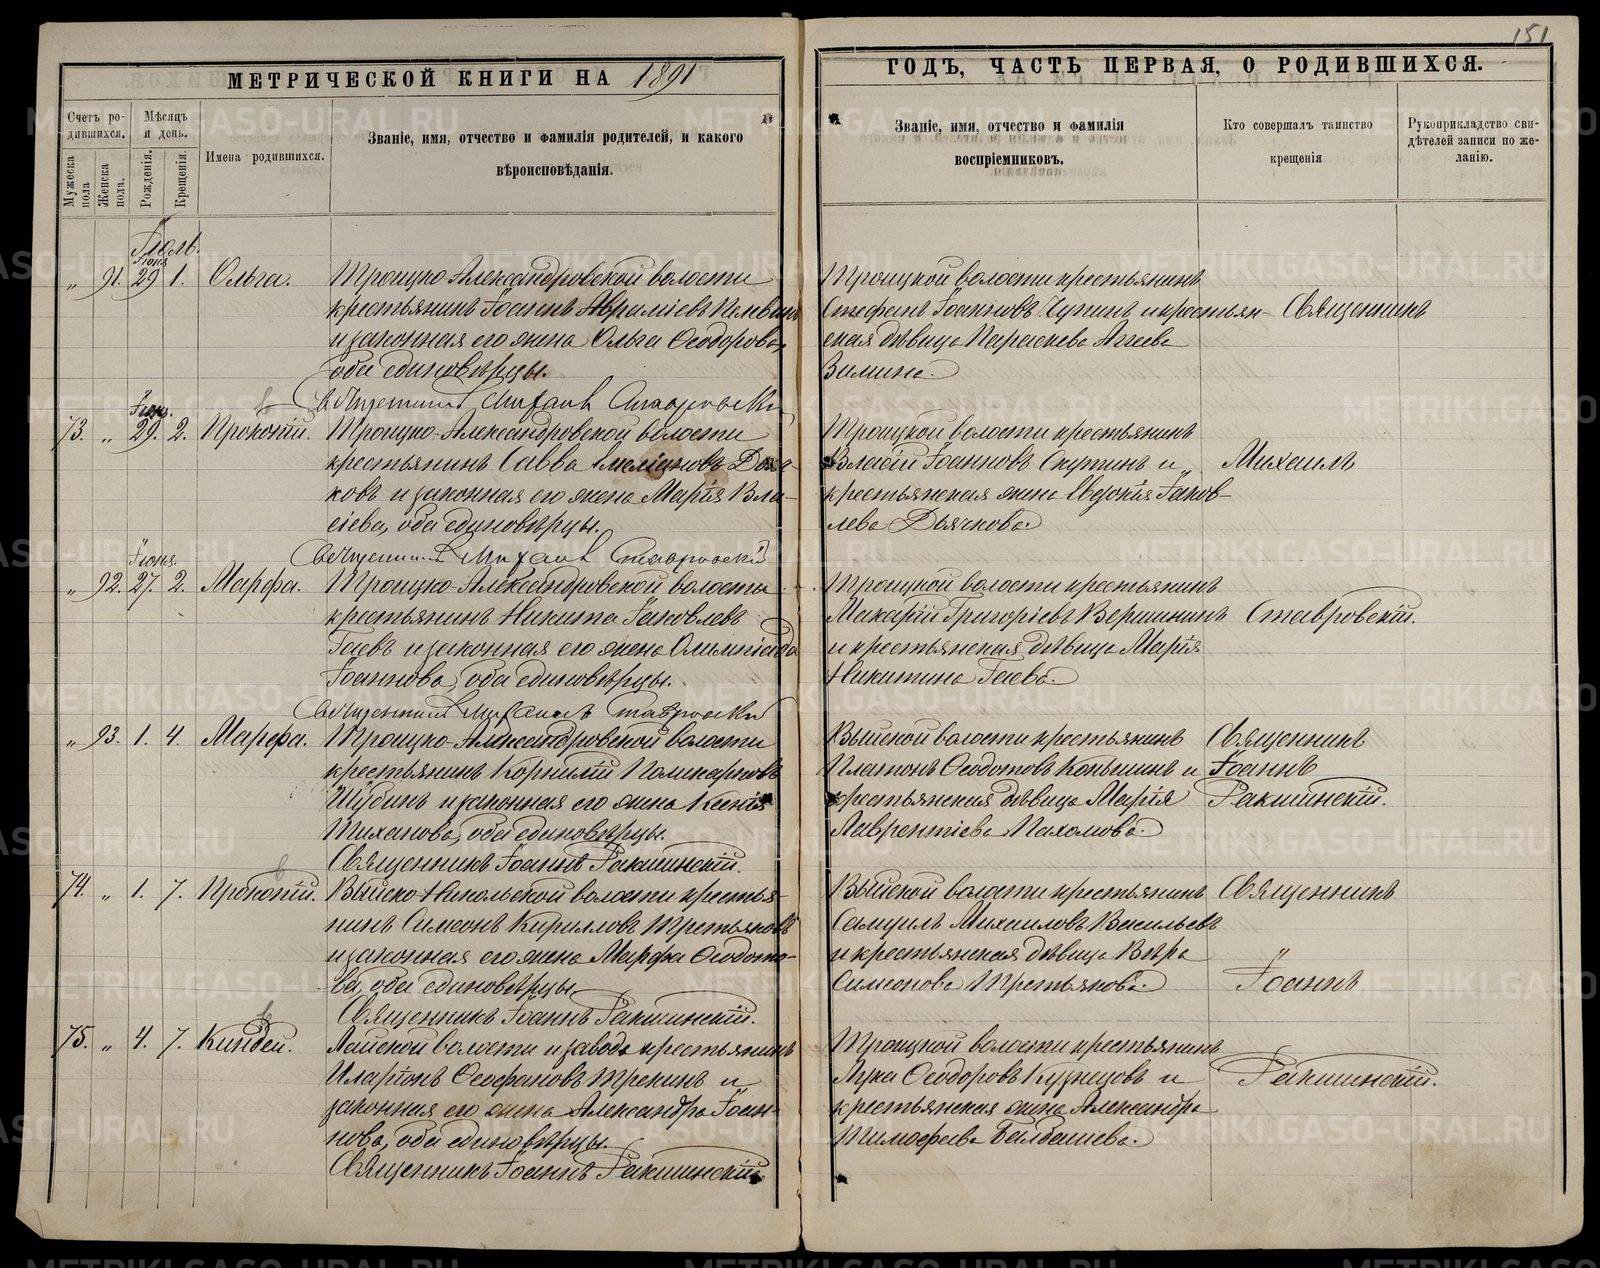 151
МЕТРИЧЕСКОЙ КНИГИ НА 1891
ГОДЪ, ЧАСТЬ ПЕРВАЯ, О РОДИВШИХСЯ.
Счетъ ро-
дившихся.
Мужеска
пола
Женска
пола.
Мѣсяцъ
и день.
Рожденія.
Крещенія.
Имена родившихся.
Званіе, имя, отчество и фамилія родителей, и какого
вѣроисповѣданія.
Званіе, имя, отчество и фамилія
воспріемниковъ.
Кто совершалъ таинство
крещенія
Рукоприкладство сви-
дѣтелей записи по же-
ланію.
Іюль.
Іюня
„ 91. 29 1. Ольга.
Троицко-Александровской волости
крестьянинъ Іоаннъ
и законная его жена Ольга Ѳеодорова,
оба единовѣрцы.
Священникъ Михаилъ Ставровскій
Троицкой волости крестьянинъ
Стефанъ Іоанновъ Чупинъ и крестьян-
ская дѣвица Параскева Агеева
Зимина.
Священникъ
Іюня.
73. „ 29. 2. Прокопій.
Троицко-Александровской волости
крестьянинъ Савва
ковъ и законная его жена Марія Вла-
сіева, оба единовѣрцы.
Священникъ Михаилъ Ставровскій
Троицкой волости крестьянинъ
Власій Іоанновъ Скутинъ и
крестьянская жена Евдокія Іаков-
лева Дьячкова.
Михаилъ
Іюня.
„ 92. 27. 2. Марфа.
Троицко-Александровской волости
крестьянинъ Никита Іаковлевъ
Гаевъ и законная его жена Олимпіада
Іоаннова, оба единовѣрцы.
Священникъ Михаилъ Ставровскій
Троицкой волости крестьянинъ
Макарій Григоріевъ Вершининъ
и крестьянская дѣвица Марія
Никитина Гаева.
Ставровскій.
„ 93. 1. 4. Марфа.
Троицко-Александровской волости
крестьянинъ Корнилій Поликарповъ
Шубинъ и законная его жена Ксенія
Тиханова, оба единовѣрцы.
Священникъ Іоаннъ Ракшинскій.
Выйской волости крестьянинъ
Платонъ Ѳеодотовъ Копышинъ и
крестьянская дѣвица Марія
Лаврентіева Пахомова.
Священникъ
Іоаннъ
Ракшинскій.
74. „ 1. 7. Прокопій.
Выйско-Никольской волости крестья-
нинъ Симеонъ Кирилловъ Третьяковъ
и законная его жена Марфа Ѳеодото-
ва, оба единовѣрцы
Священникъ Іоаннъ Ракшинскій.
Выйской волости крестьянинъ
Самуилъ Михаиловъ Васильевъ
и крестьянская дѣвица Вѣра
Симеонова Третьякова.
Священникъ
„
Іоаннъ
75. „ 4. 7. Киндей.
Лайской волости и завода крестьянинъ
Иларіонъ Ѳеофановъ Трекинъ и
законная его жена Александра Іоан-
нова, оба единовѣрцы.
Священникъ Іоаннъ Ракшинскій.
Троицкой волости крестьянинъ
Лука Ѳеодоровъ Кузнецовъ и
крестьянская жена Александра
Тимофеева Балбашева.
Ракшинскій.
METRIKI.GASO-URAL.RU